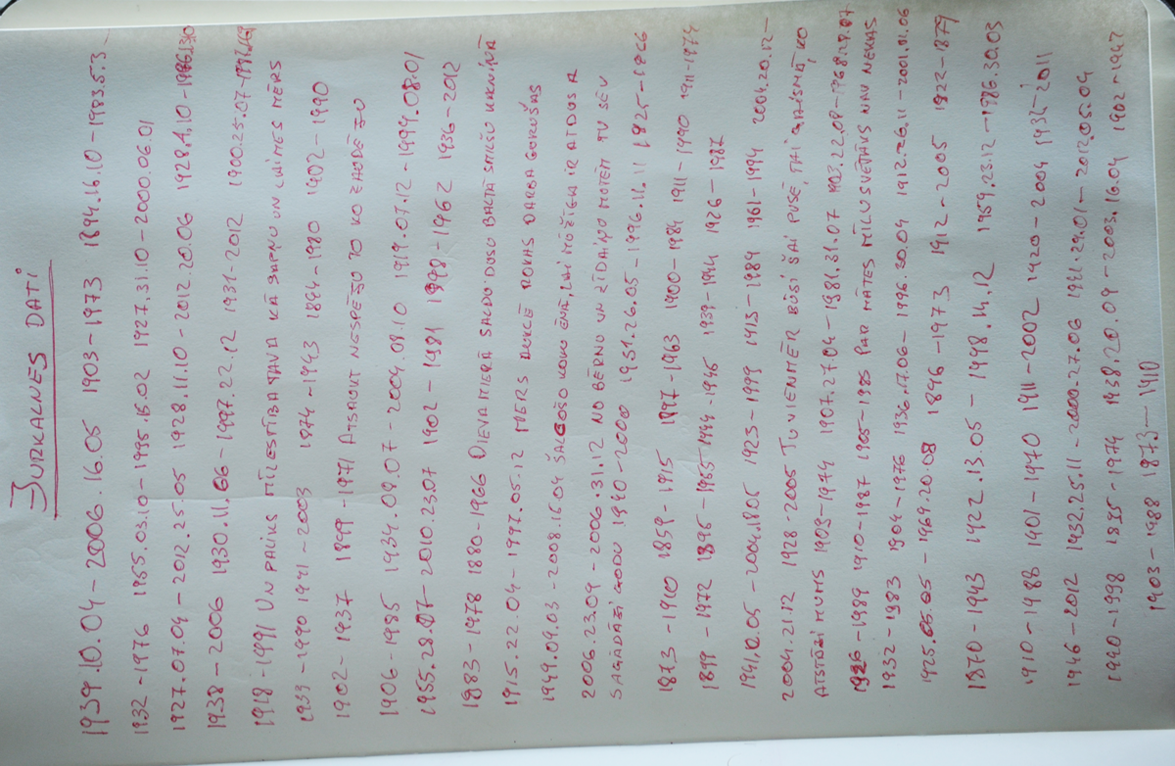 JURKALNES DATI
1939.10.04 - 2006.16.05 1903-1973 1894.16.10-1983.5.3-
1932-1976 1955.03.10-1995.16.02 1927.31.10-2000.06.01
1927.07.04-2012.25.05 1928.11.10-2012.20.06 1928.4.10-
1938-2006 1930.11.66-1997.22.12 1931-2012 1900.25.07-
1918-1991 UN PALIKS MĪLESTĪBA TAVA KĀ SAPŅU UN LAIMES MĒRS
1939-1990 1941-2003 1974-1993 1894-1980 1902-1990
1902-1937 1899-1971 ATSAUKT NESPĒJO TO KO ZAUDĒJU
1906-1985 1934.09.07-2004.08.10 1919.07.12-1999.08.01
1955.28.07-2010.23.07 1902-1981 1898-1962 1936-2012
1983-1978 1880-1966 DIEVA MIERĀ SALDO DUSU BALTĀ SMILŠU KALNIŅĀ
1915.22.04-1997.05.12 MIERS DVĒSELE ROKAS DARBA GURUŠAS
1949.09.03-2008.16.04 ŠALCOŠO KOKU ĒNĀ, LAI MŪŽĪGA IR ATDUSA
2006.23.09-2006.31.12 NO BĒRNU UN ZĪDAIŅU MUTĒM TU SEV
SAGĀDĀJI GODU 1940-2000 1951.26.05-1996.11.11 1825-1866
1873-1910 1859-1915 1897-1963 1900-1984 1911-1990 1911-1974
1899-1972 1896-1965-1944-1945 1939-1944 1926-1987
1941.10.05-2004.18.05 1923-1999 1915-1984 1961-1994 2004.20.12-
2004.21.12 1928-2005 TU VIENMĒR BŪSI ŠAI PUSĒ, TAI GAISMĀ, KO
ATSTĀJI MUMS 1903-1974 1907.27.04-1981.31.07 1903.22.08-1968.29.07
1926-1989 1910-1987 1905-1985 PAR MĀTES MĪLU SVĒTĀKS NAV NEKAS
1932-1983 1904-1976 1936.17.06-1996.30.04 1912.26.11-2001.01.06
1925.05.05-1969.20.08 1896-1973 1912-2005 1822-1879
1870-1943 1922.13.05-1998.14.12 1959.23.12-1986.30.03
1910-1988 1901-1970 1911-2002 1920-2004 1932-2011
1946-2012 1932.25.11-2000.27.06 1921.29.01-2012.05.04
1940-1998 1935-1974 1938.20.09-2003.16.04 1902-1947
1903-1988 1873-1910